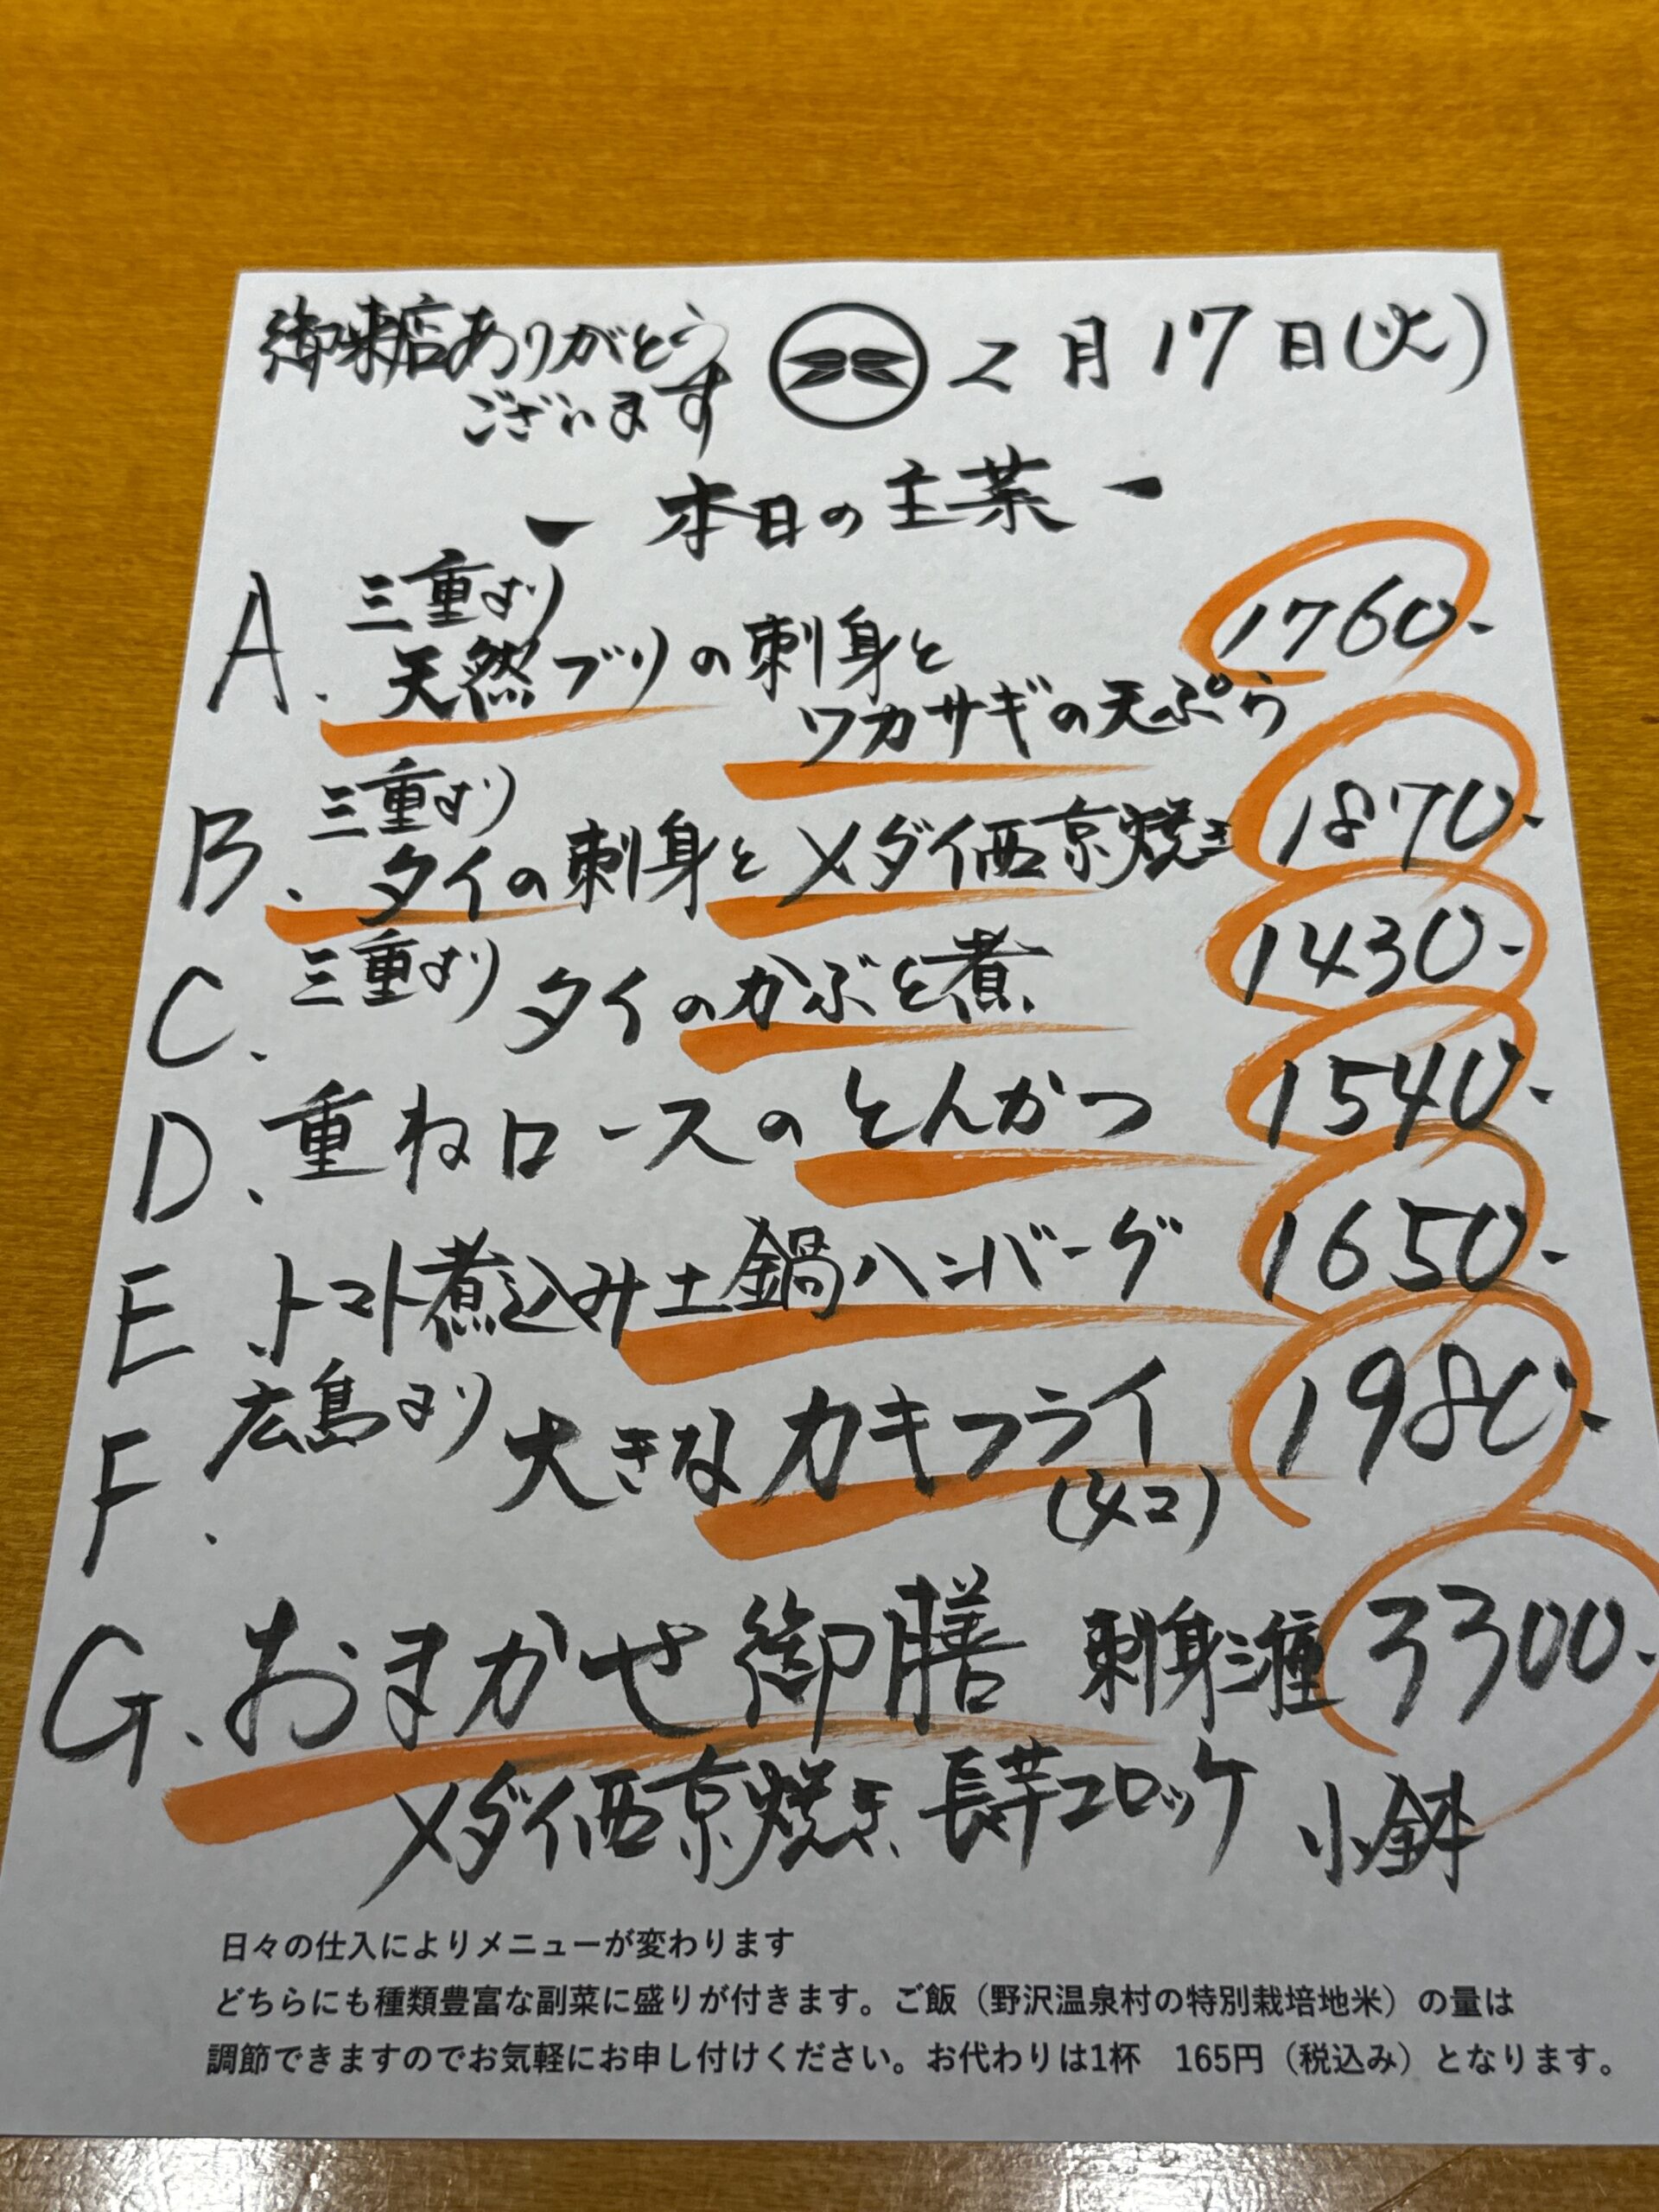 御来店ありがとう
ございます
2月17日(火)
ー 本日の主菜 ー
A. 三重より
天然ブリの刺身と
ワカサギの天ぷら 1760-
B. 三重より
タイの刺身とメダイ西京焼き 1870-
C. 三重より タイのかぶと煮 1430-
D. 重ねロースのとんかつ 1540-
E. トマト煮込み土鍋ハンバーグ 1650-
F. 広島より 大きなカキフライ 1980-
(4コ)
G. おまかせ御膳 刺身三種 3300-
メダイ西京焼き 長芋コロッケ 小鉢
日々の仕入によりメニューが変わります
どちらにも種類豊富な副菜に盛りが付きます。ご飯（野沢温泉村の特別栽培地米）の量は
調節できますのでお気軽にお申し付けください。お代わりは1杯　165円（税込み）となります。